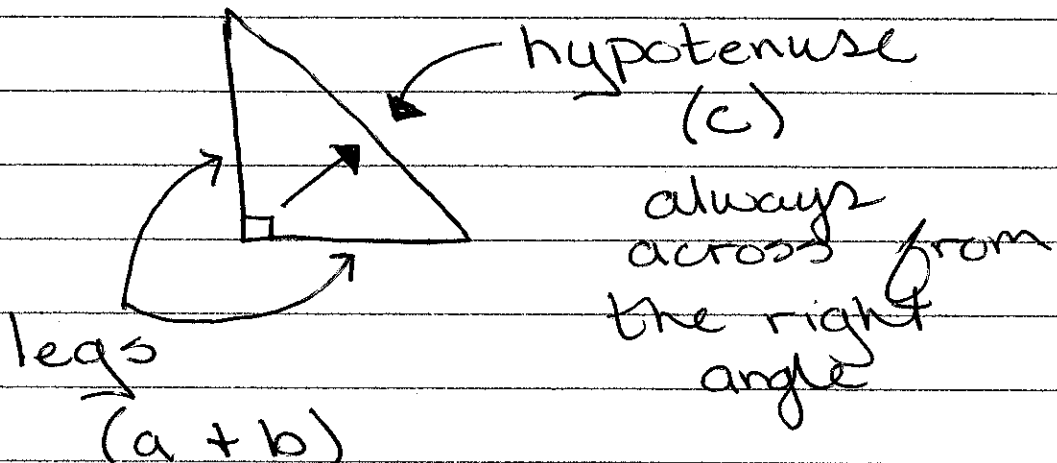 hypotenuse
(c)
always
across from
the right
angle
legs
(a + b)